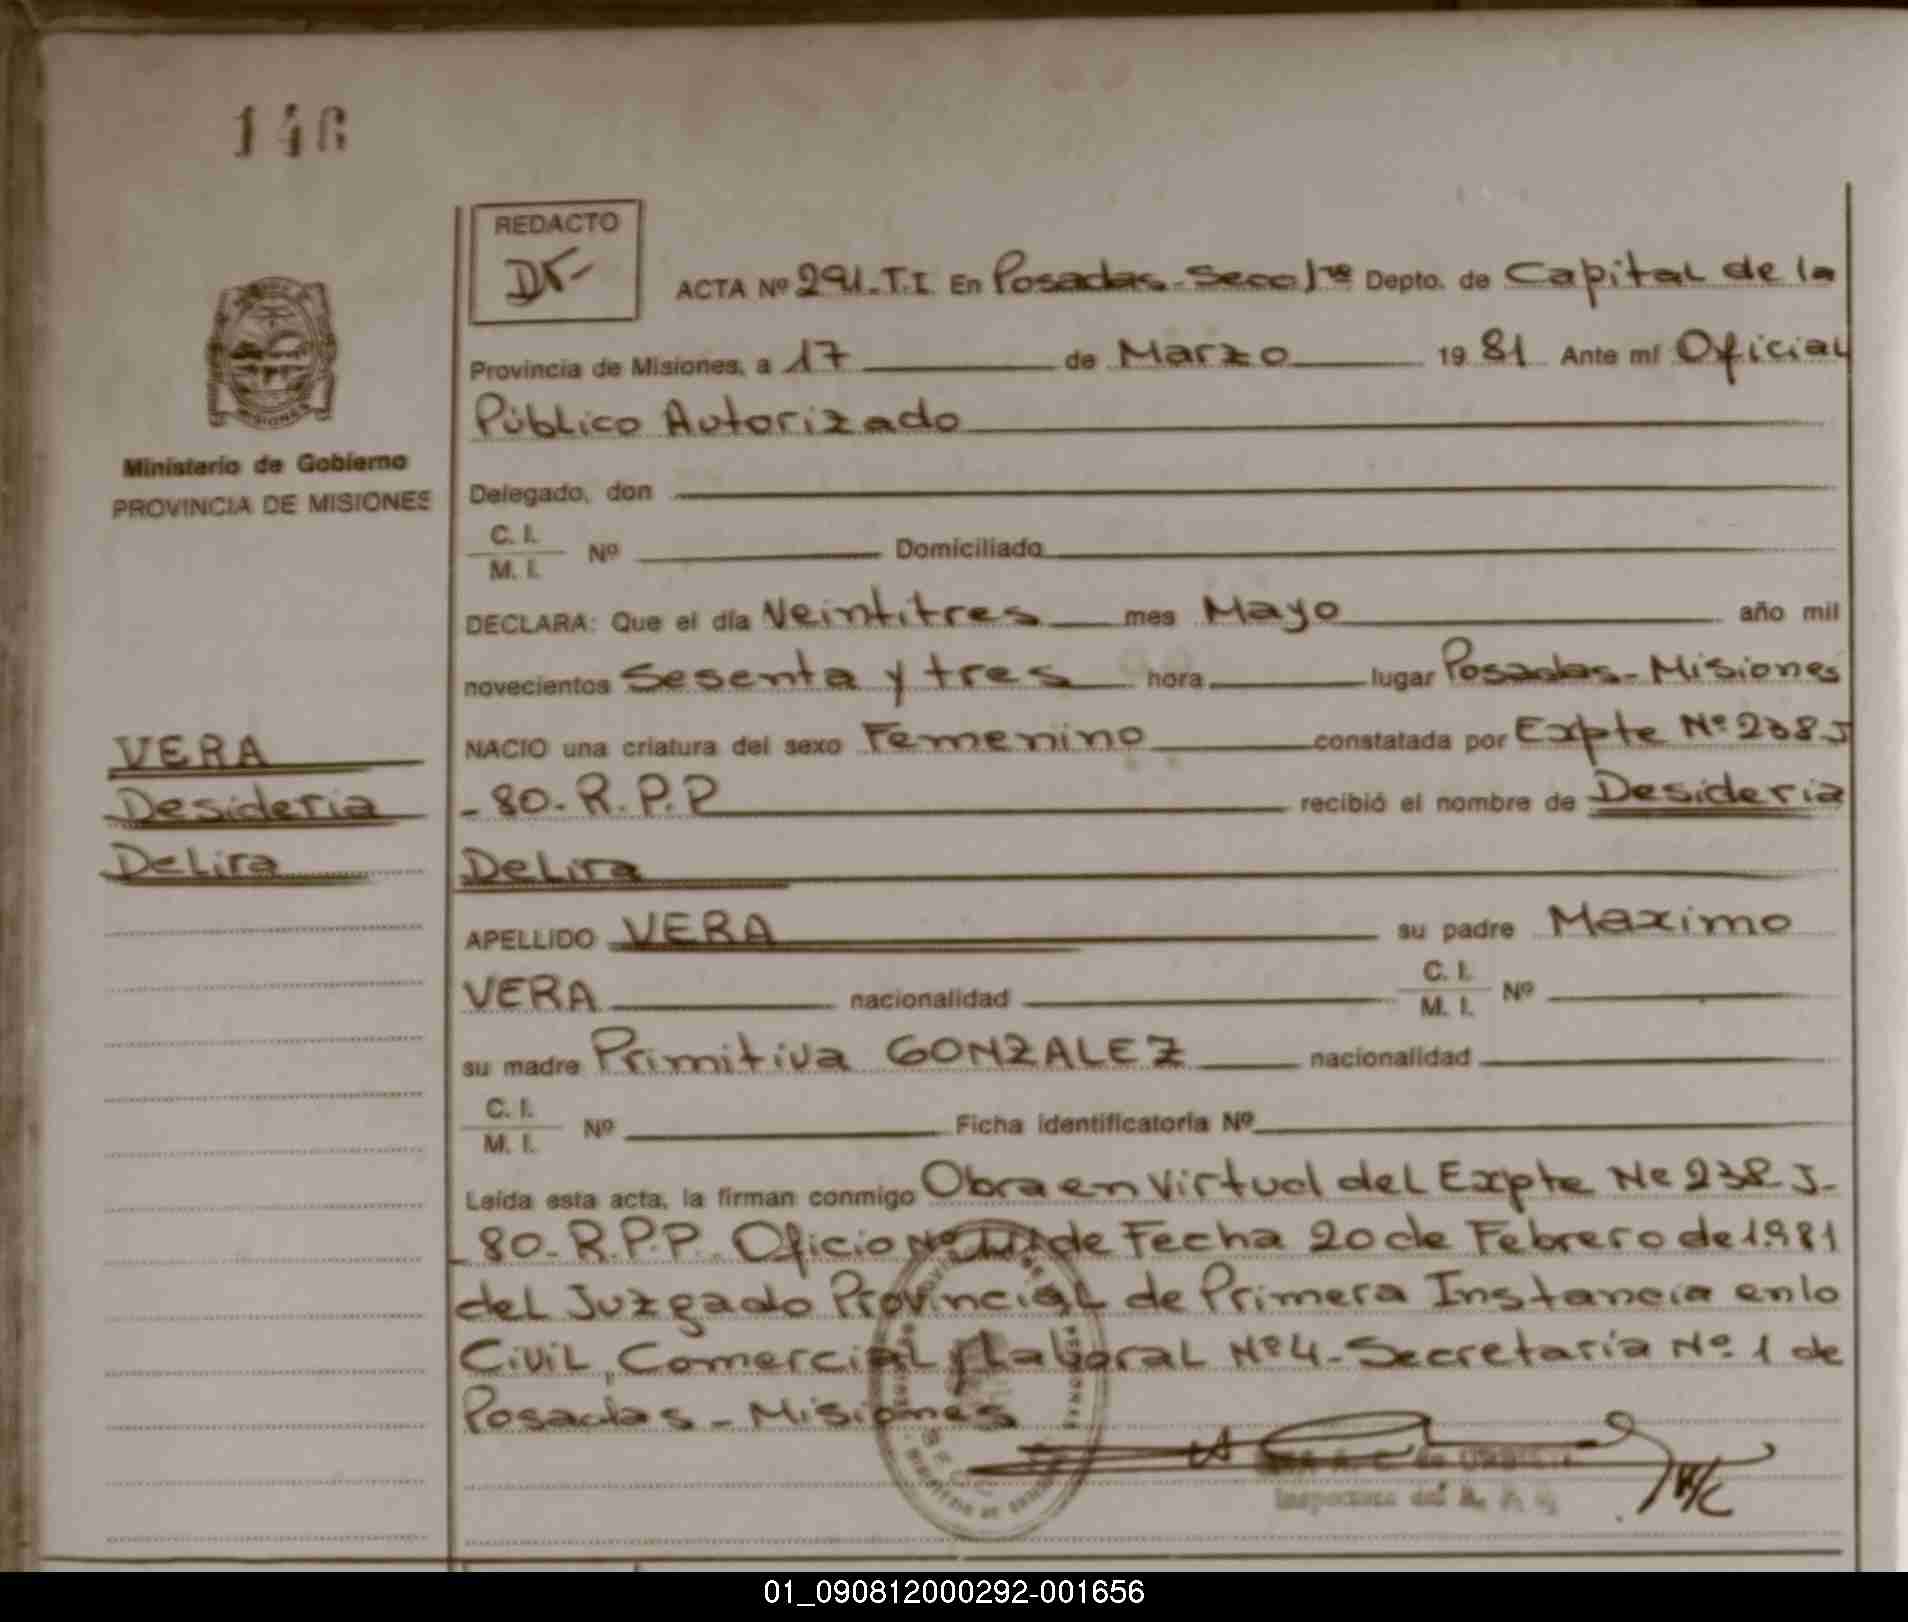 146
REDACTO
DF-
ACTA Nº 291-T.I. En Posadas-Secc 1ra Depto. de Capital de la
Provincia de Misiones, a 17 de Marzo 19 81 Ante mí Oficial
Público Autorizado
Ministerio de Gobierno
PROVINCIA DE MISIONES
Delegado, don
C. I.
M. I. Nº Domiciliado
DECLARA: Que el día Veintitres mes Mayo año mil
novecientos Sesenta y tres hora lugar Posadas-Misiones
VERA
Desideria
Delira
NACIO una criatura del sexo Femenino constatada por Expte Nº 238 J
-80-R.P.P recibió el nombre de Desideria
Delira
APELLIDO VERA su padre Maximo
VERA nacionalidad C. I.
M. I. Nº
su madre Primitiva GONZALEZ nacionalidad
C. I.
M. I. Nº Ficha identificatoria Nº
Leída esta acta, la firman conmigo Obra en virtud del Expte Nº 238 J-
-80-R.P.P. Oficio Nº de Fecha 20 de Febrero de 1.981
del Juzgado Provincial de Primera Instancia en lo
Civil, Comercial y Laboral Nº 4-Secretaria Nº 1 de
Posadas - Misiones
01_090812000292-001656